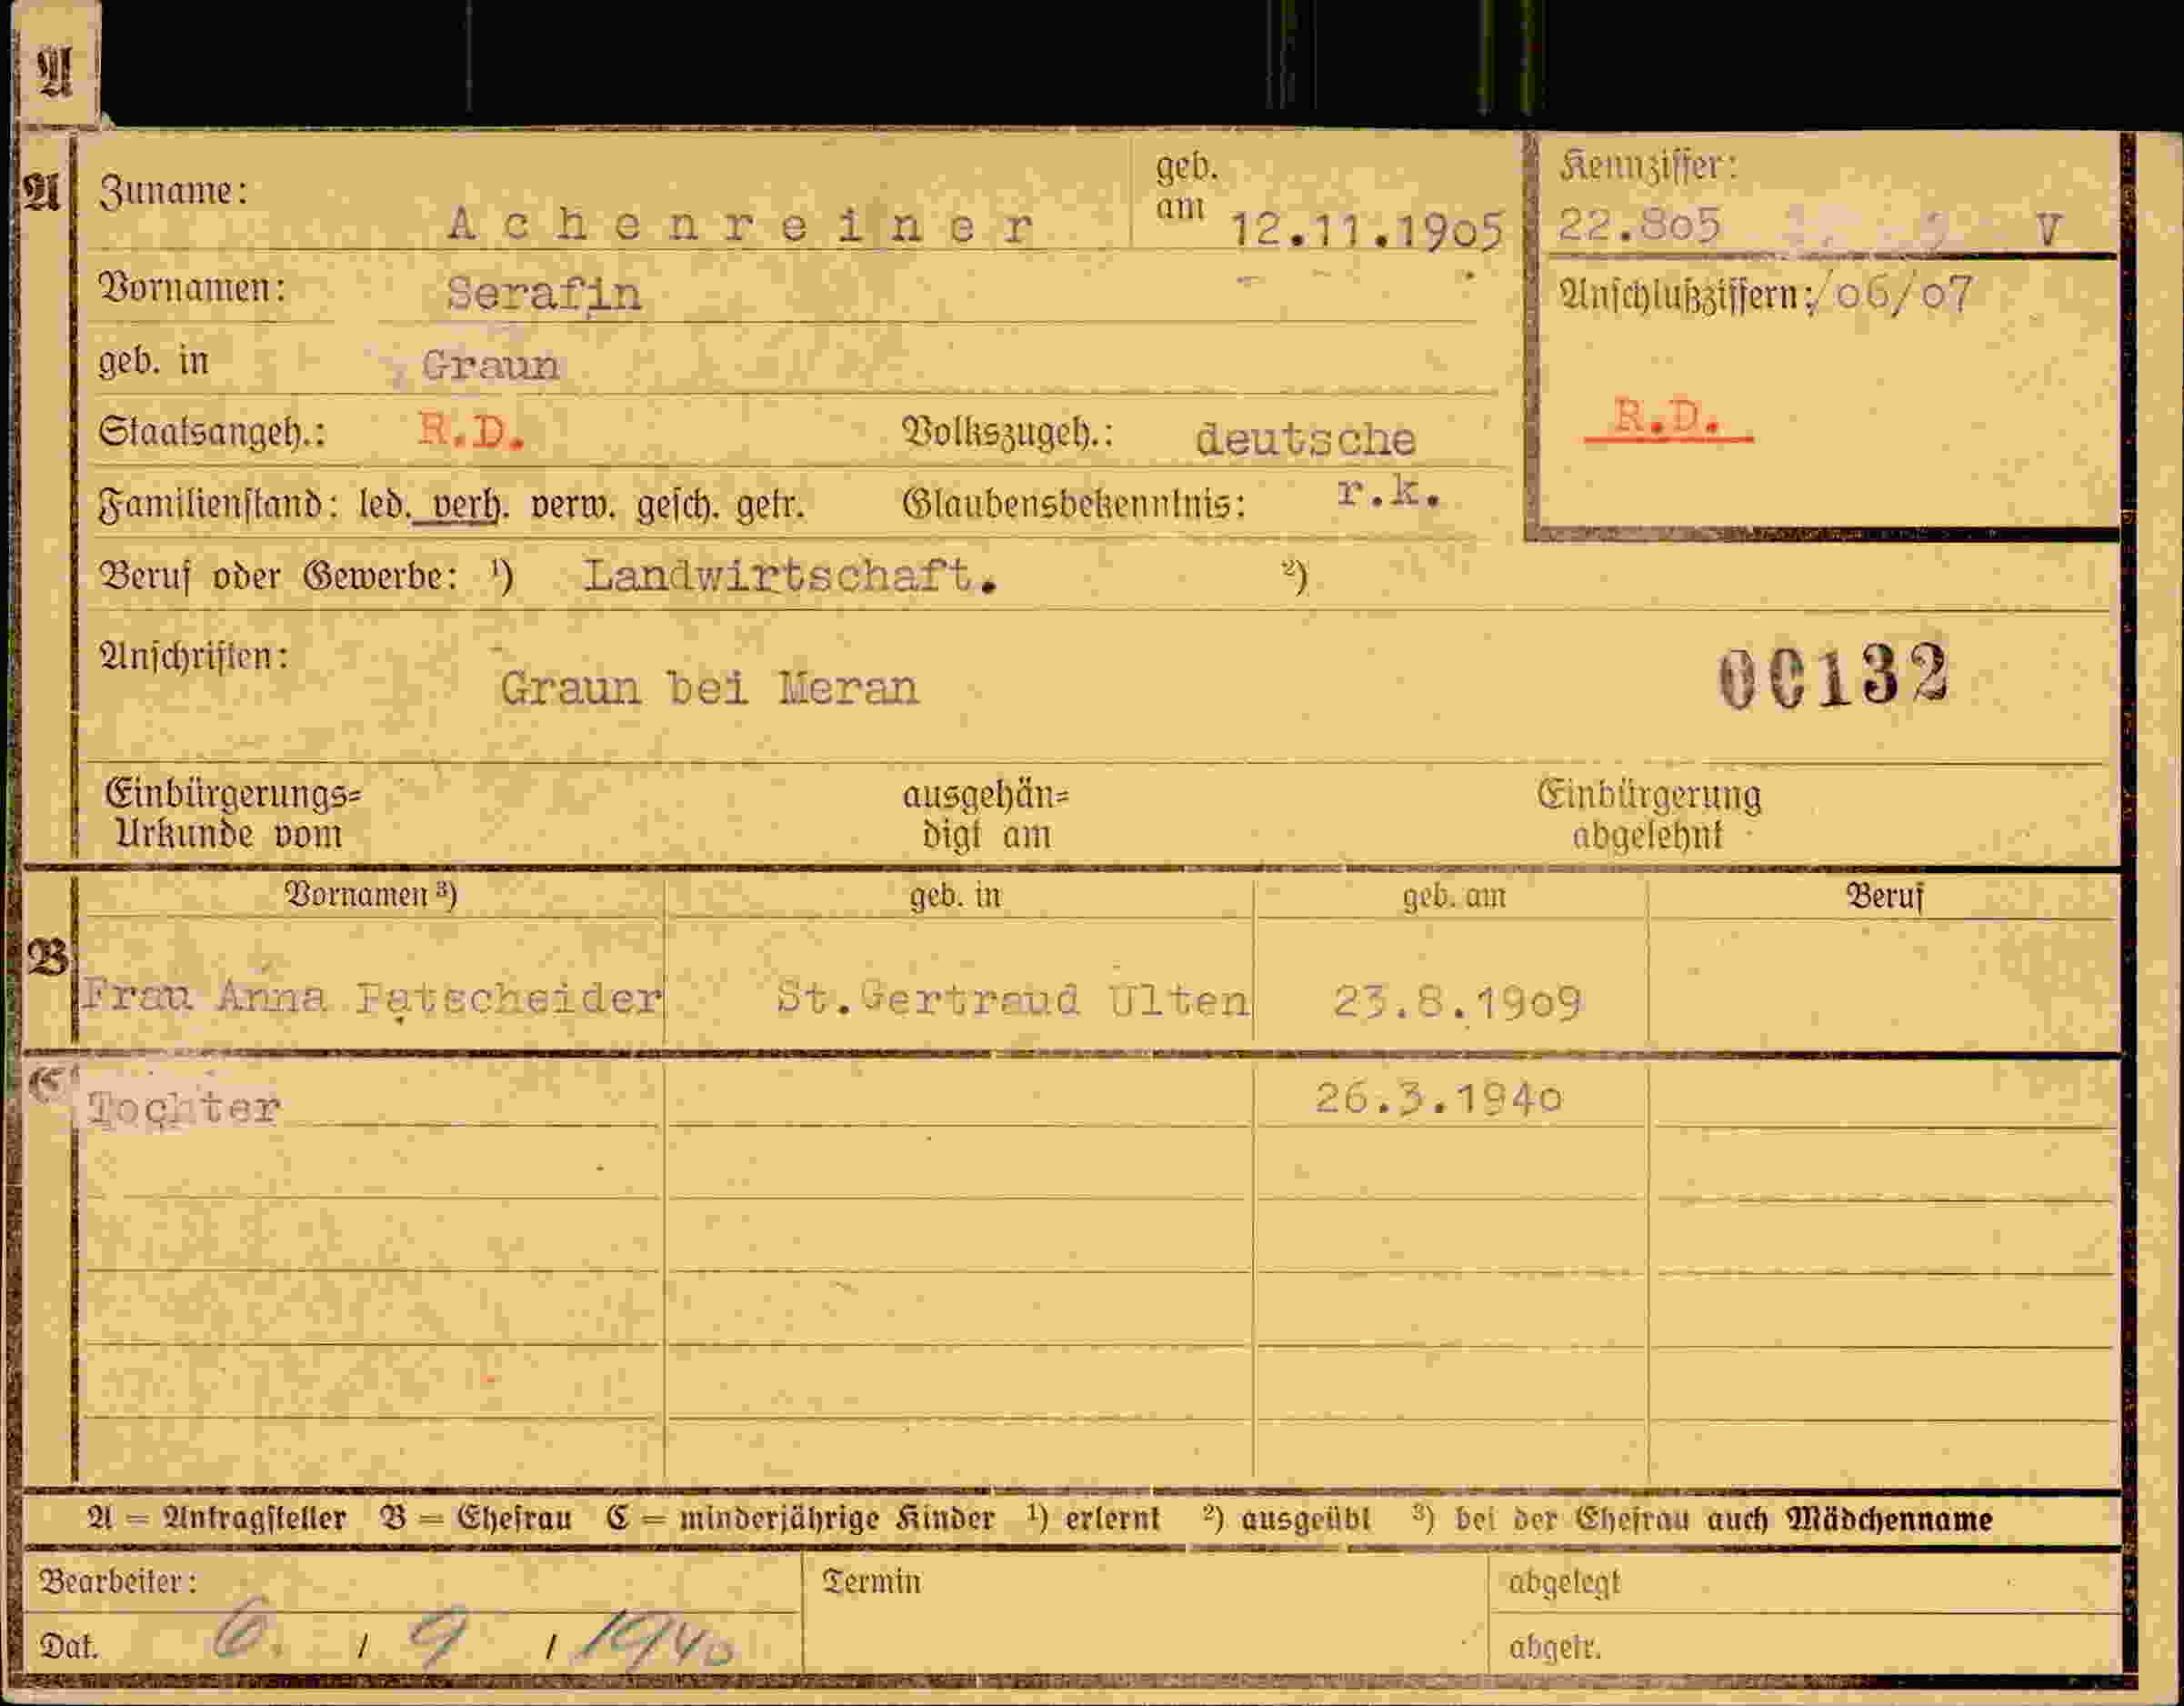 A
A
Zuname: Achenreiner geb. am 12.11.1905
Kennziffer:
22.805 V
Vornamen: Serafin
Anschlußziffern: /06/07
geb. in Graun
R.D.
Staatsangeh.: R.D. Volkszugeh.: deutsche
Familienstand: led. verh. verw. gesch. getr. Glaubensbekenntnis: r.k.
Beruf oder Gewerbe: ¹) Landwirtschaft. ²)
Anschriften: Graun bei Meran
00132
Einbürgerungs=
Urkunde vom
ausgehän=
digt am
Einbürgerung
abgelehnt
Vornamen ³) geb. in geb. am Beruf
B
Frau Anna Patscheider St.Gertraud Ulten 23.8.1909
C
Tochter 26.3.1940
A = Antragsteller B = Ehefrau C = minderjährige Kinder ¹) erlernt ²) ausgeübt ³) bei der Ehefrau auch Mädchenname
Bearbeiter: Termin abgelegt
Dat. 6. / 9 / 1940 abgetr.